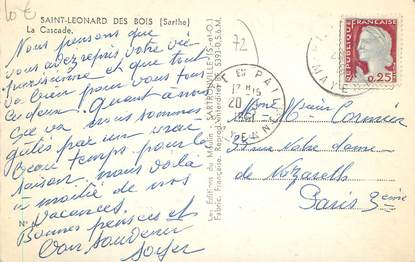 10€
SAINT-LEONARD DES BOIS (Sarthe)
La Cascade.
Nous pensons que
vous avez repris votre vie
parisienne et que tout
va bien pour vous tous
Quant à nous
ça va nous sommes
gâtés par un vrai
beau temps pour la
saison. nous voilà
à moitié de nos
vacances.
Bonnes pensées et
bon souvenir
72
Les Editions du Moulin - SARTROUVILLE (S.-et-O.)
Fabric. Française. Reprod. Interdite
EN PAIL
17 H 15
20
1961
MAYENNE
REPUBLIQUE FRANÇAISE
0,25
MAYE
Cormier
rue Notre Dame
de Nazareth
Paris 3eme